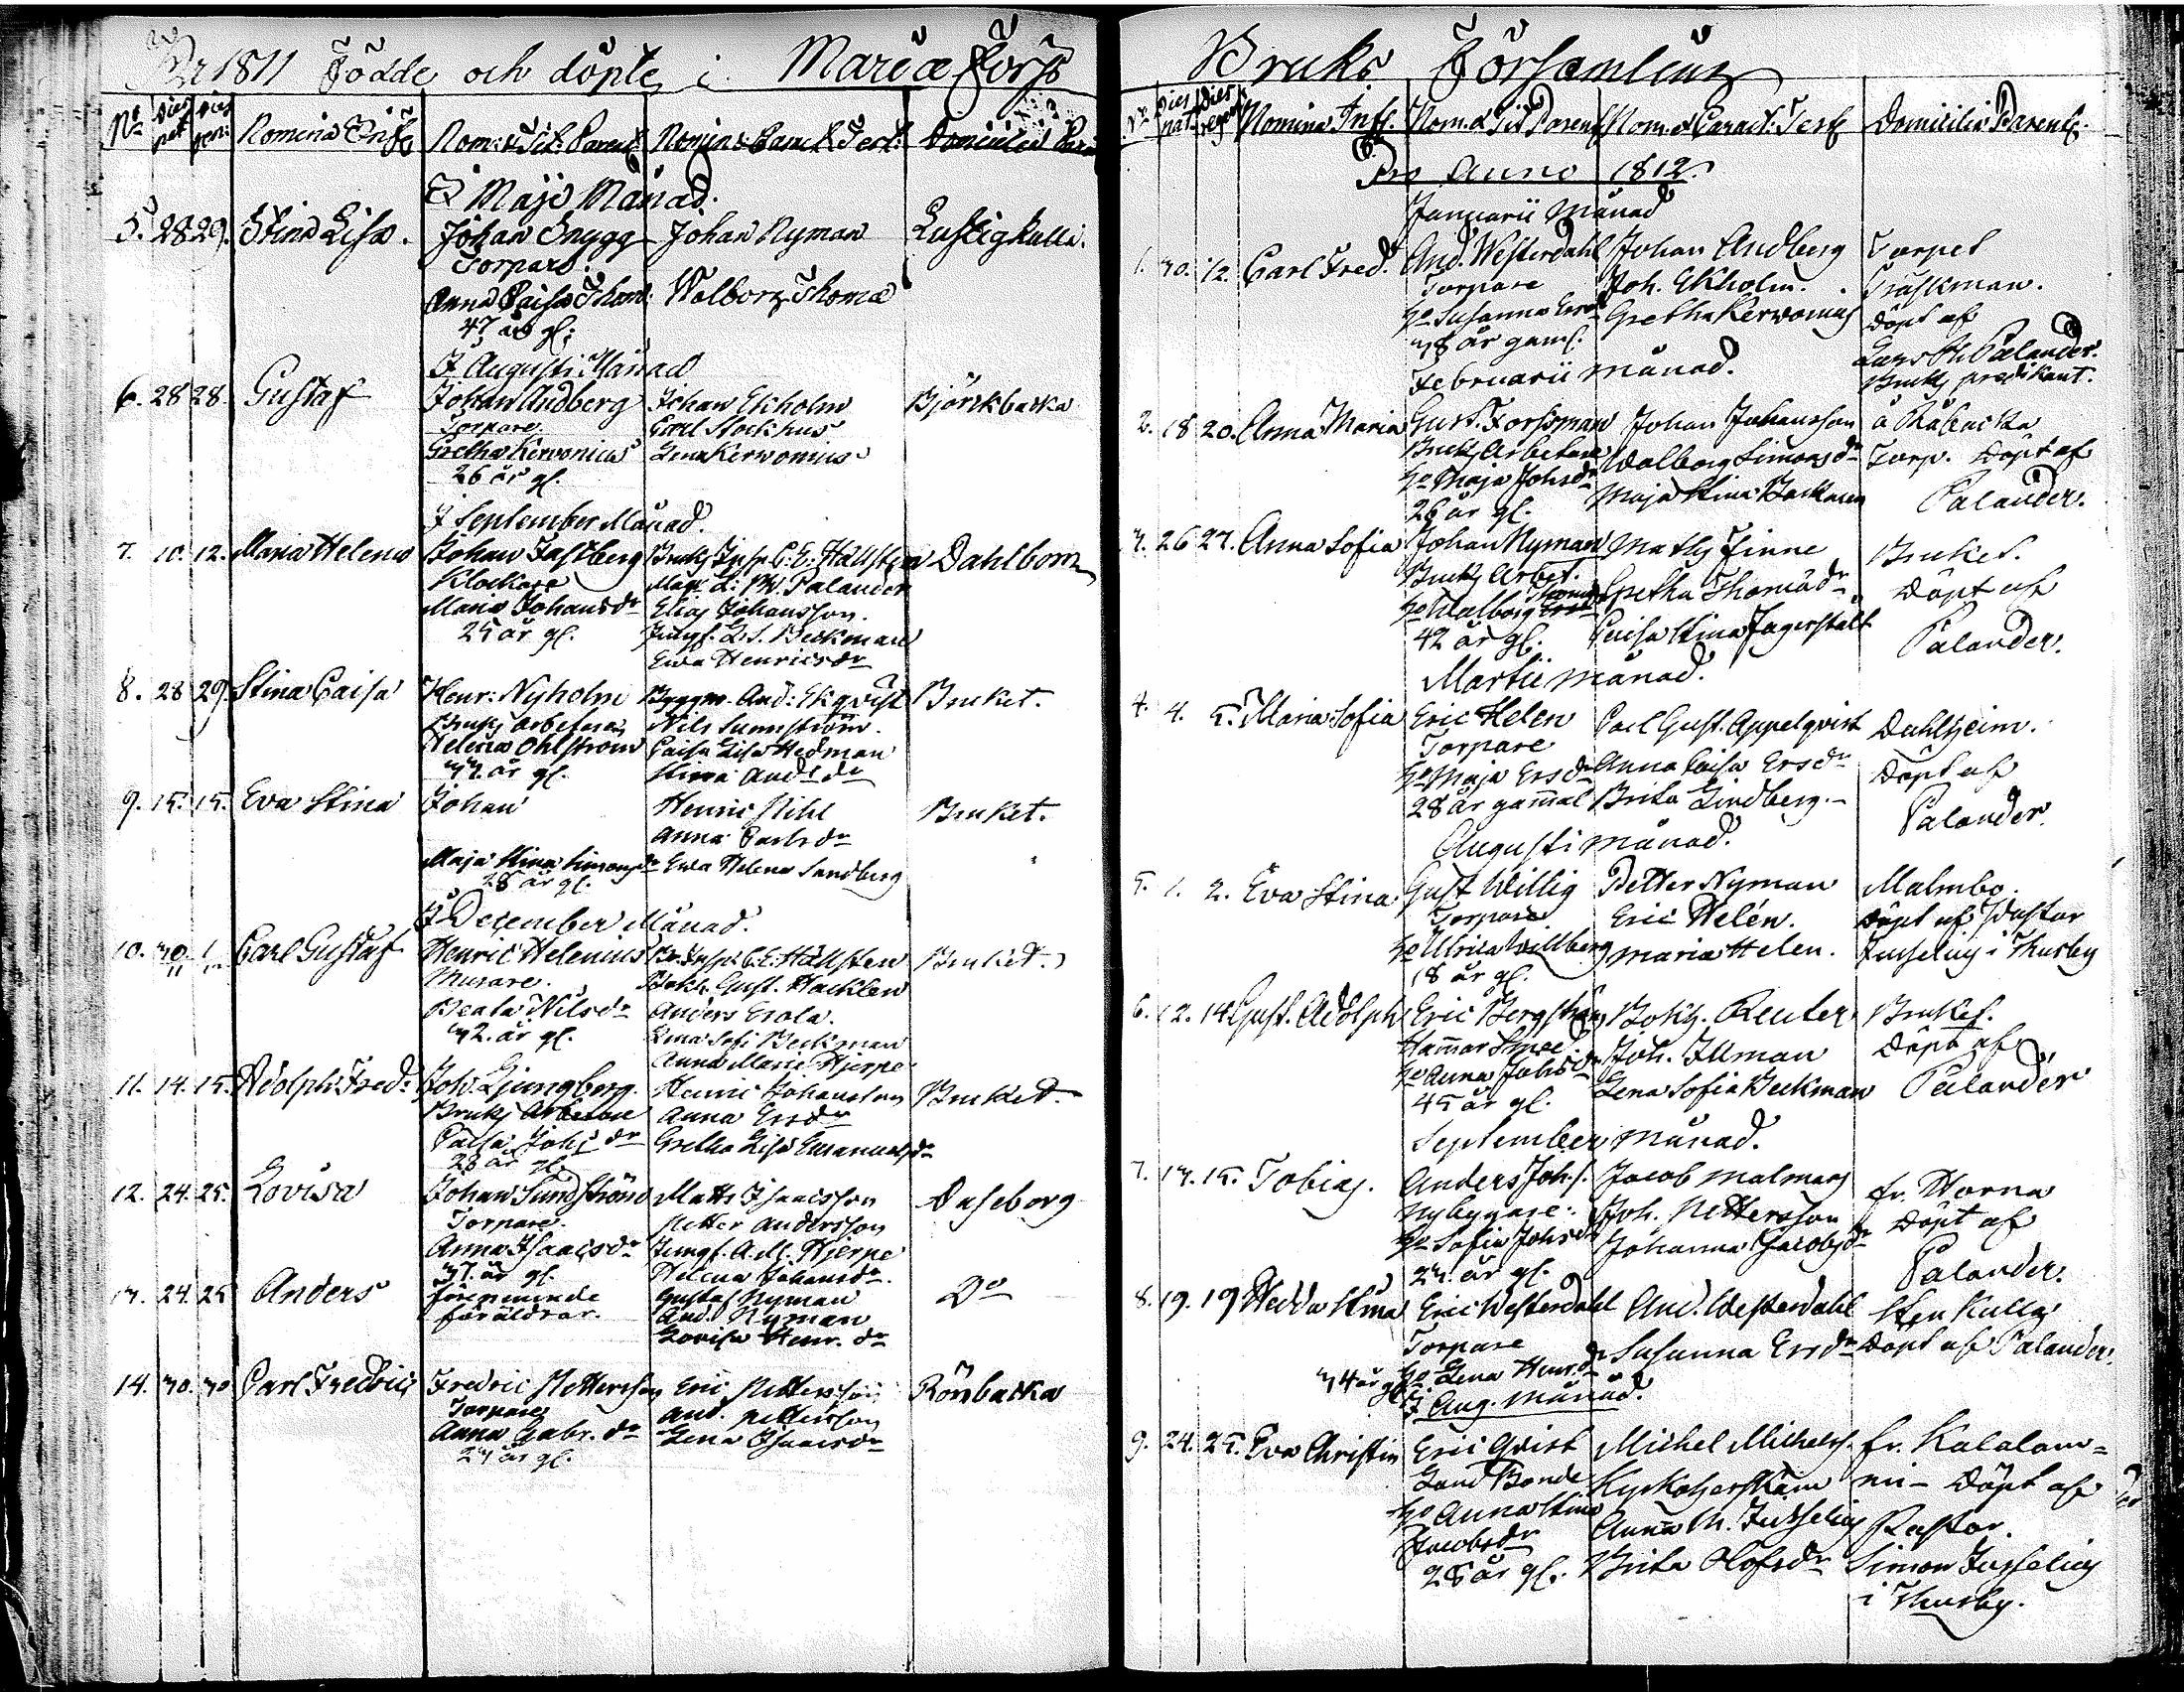 År 1811 Födde och döpte i Mariæ Forss
No Dies nat. Dies ren: Nomina Inf. Nom: & Tit: Parent: Nomin: & Caract. Test: Domicilia Par
I Maji Månad.
5. 28 29. Stina Lisa. Johan Snygg Johan Nyman Lustigkulla.
Torpare.
Anna Caisa Thom: Walborg Thomæ
47 år gl:
I Augusti Månad
6. 28 28. Gustaf Johan Andberg Johan Ekholm Björkbacka
Torpare Carl Stockhus
Gretha Kervonius Lena Kerwonius
26 år gl.
I September Månad.
7. 10. 12. Maria Helena Johan Fastberg Bruks Insp. C: E: Hållsten Dahlborg
Klockare Mag: L: M. Palander
Maria Johansdr Elias Johansson.
25 år gl. Jungf. L. S. Beckman
Ewa Henricsdr
8. 28 29. Stina Caisa Henr: Nyholm Byggm. And: Ekqvist Bruket.
Bruks arbetare Nils Sunnström.
Helena Ohlström Caisa Lisa Hedman
33 år gl. Stina Andsdr
9. 15. 15. Eva Stina Johan Henric Stihl Bruket.
Anna Carlsdr
Maja Stina Simonsdr Ewa Helena Sandberg
28 år gl.
I December Månad.
10. 30 1 Carl Gustaf Henric Helenius Br. Insp. C. E. Hållsten Bruket.
Murare. Bokh. Gust. Hacklen
Beata Nilsdr Anders Erola.
32. år gl. Lena Sofi Beckman
Anna Maria Hjerpe
11. 14. 15. Adolph Fred: Joh. Ljungberg. Henric Johansson Bruket.
Bruks Arbetare Anna Ersdr
Caisa Johsdr Gretha Lisa Emanuelsdr
28 år gl.
12. 24. 25. Lovisa Johan Sundström Matts Isaacsson Daseborg
Torpare. Petter Andersson
Anna Isaacsdr Jungf. A. M. Hjerpe
37. år gl. Helena Johansdr.
13. 24. 25 Anders förenemnde Gustaf Nyman Do
föräldrar. And. Nyman
Lovisa Henr. dr
14. 30. 30 Carl Fredric Fredric Pettersson Eric Pettersson Rönbacka
Torpare And. Pettersson
Anna Gabr. dr Lena Isaacsdr
23 år gl.
Bruks Församling
No Dies nat. Dies regen. Nomina Inf. Nom. & Tit Parent Nom. & Caract: Test Domicilia Parent.
Pro Anno 1812.
Januarii månad
1. 30. 12. Carl Fred. And. Westerdahl Johan Andberg Torpet
Torpare Joh. Ekholm. Träskman.
ho Susanna Ersdr Gretha Kerwonius Döpt af
38 år gaml. Lars M. Palander.
Februarii månad. Bruks predikant.
2. 18 20. Anna Maria Gust. Forssman Johan Johansson å Råbacka
Bruks Arbetare Walborg Simonsdr Torp. Döpt af
ho Maja Johsdr Maja Stina Backman Palander.
26 år gl.
3. 26 27. Anna Sofia Johan Nyman Maths Finne Bruket.
Bruks Arbet. Gretha Thomädr Döpt af
ho Walborg Thoms Caisa Stina Fagerstält Palander.
42 år gl.
Martii månad.
4. 4. 5. Maria Sofia Eric Helen Carl Gust. Appelqvist Dahlheim.
Torpare Anna Caisa Ersdr Döpt af
ho Maja Ersdr Brita Lindberg. Palander.
28 år gammal
Augusti månad.
5. 1. 2. Eva Stina Gust Willig Petter Nyman Malmbo.
Torpare Eric Helén. Döpt af Pastor
ho Ulrica Willberg Maria Helen. Jusselius i Thusby
18 år gl.
6. 12. 14 Gust. Adolph Eric Bergström Bokh. Reuter Bruket.
Hammar Smed Joh. Illman Döpt af
ho Anna Johsdr Lena Sofia Beckman Palander
45 år gl.
September månad.
7. 13. 15. Tobias. Anders Joh.s. Jacob Malmars fr. Norna
Nybygare. Joh. Pettersson Döpt af
ho Sofia Johsdr Johanna Jacobsdr Palander.
23. år gl.
8. 19. 19 Hedda Stina Eric Westerdahl And. Westerdahl Stenkulla
Torpare Susanna Ersdr Döpt af Palander.
34 år gl. ho Lena Henr.dr
I Aug. månad.
9. 24. 25. Eva Christin Eric Qvist Michel Michels. fr. Kalalam=
Land Bonde mi - Döpt af
ho Anna Stina Anna M. Jusselius Pastor.
Jacobsdr Brita Olofsdr Simon Jusselius
28 år gl. i Thusby.